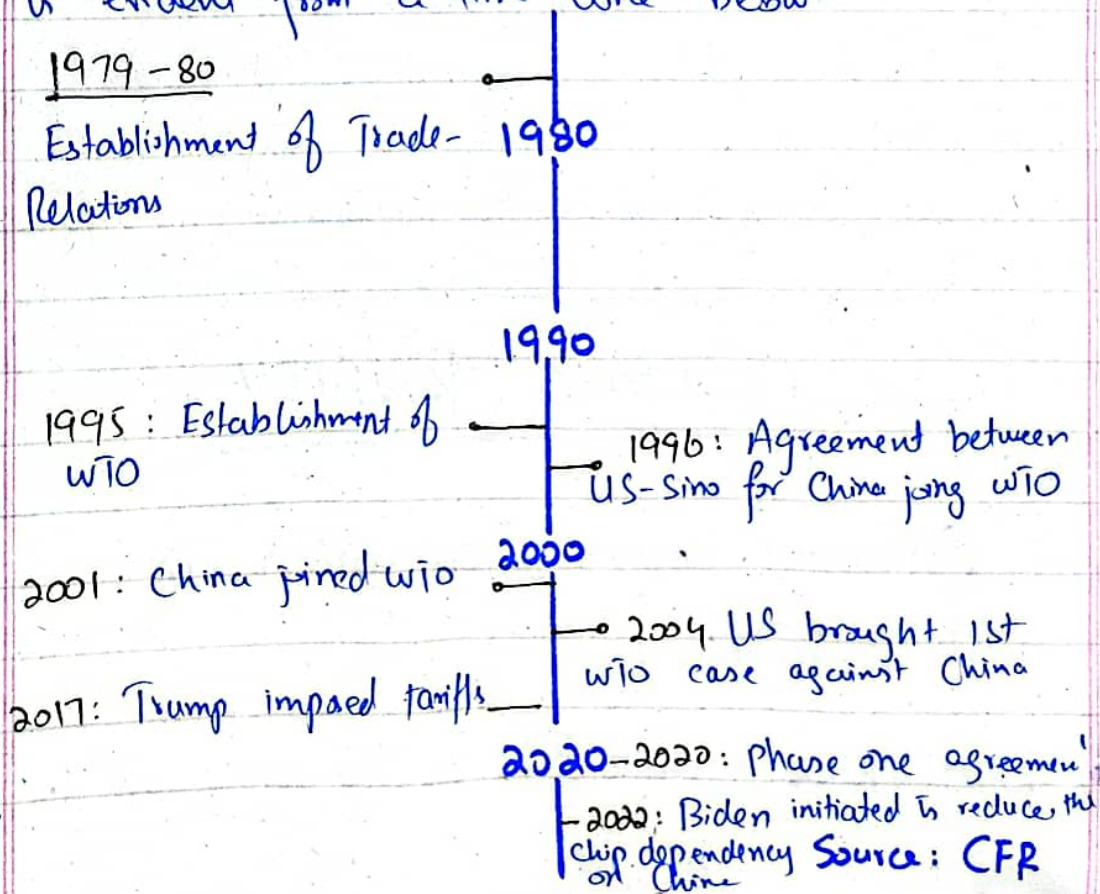 is evident from a time line below
1979-80
Establishment of Trade-
Relations
1980
1990
1995: Establishment of
WTO
1996: Agreement between
US-Sino for China joing WTO
2000
2001: China joined WTO
2004. US brought 1st
WTO case against China
2017: Trump impaed tariffs
2020-2020: Phase one agreemen
-2022: Biden initiated to reduce the
chip dependency Source: CFR
on China